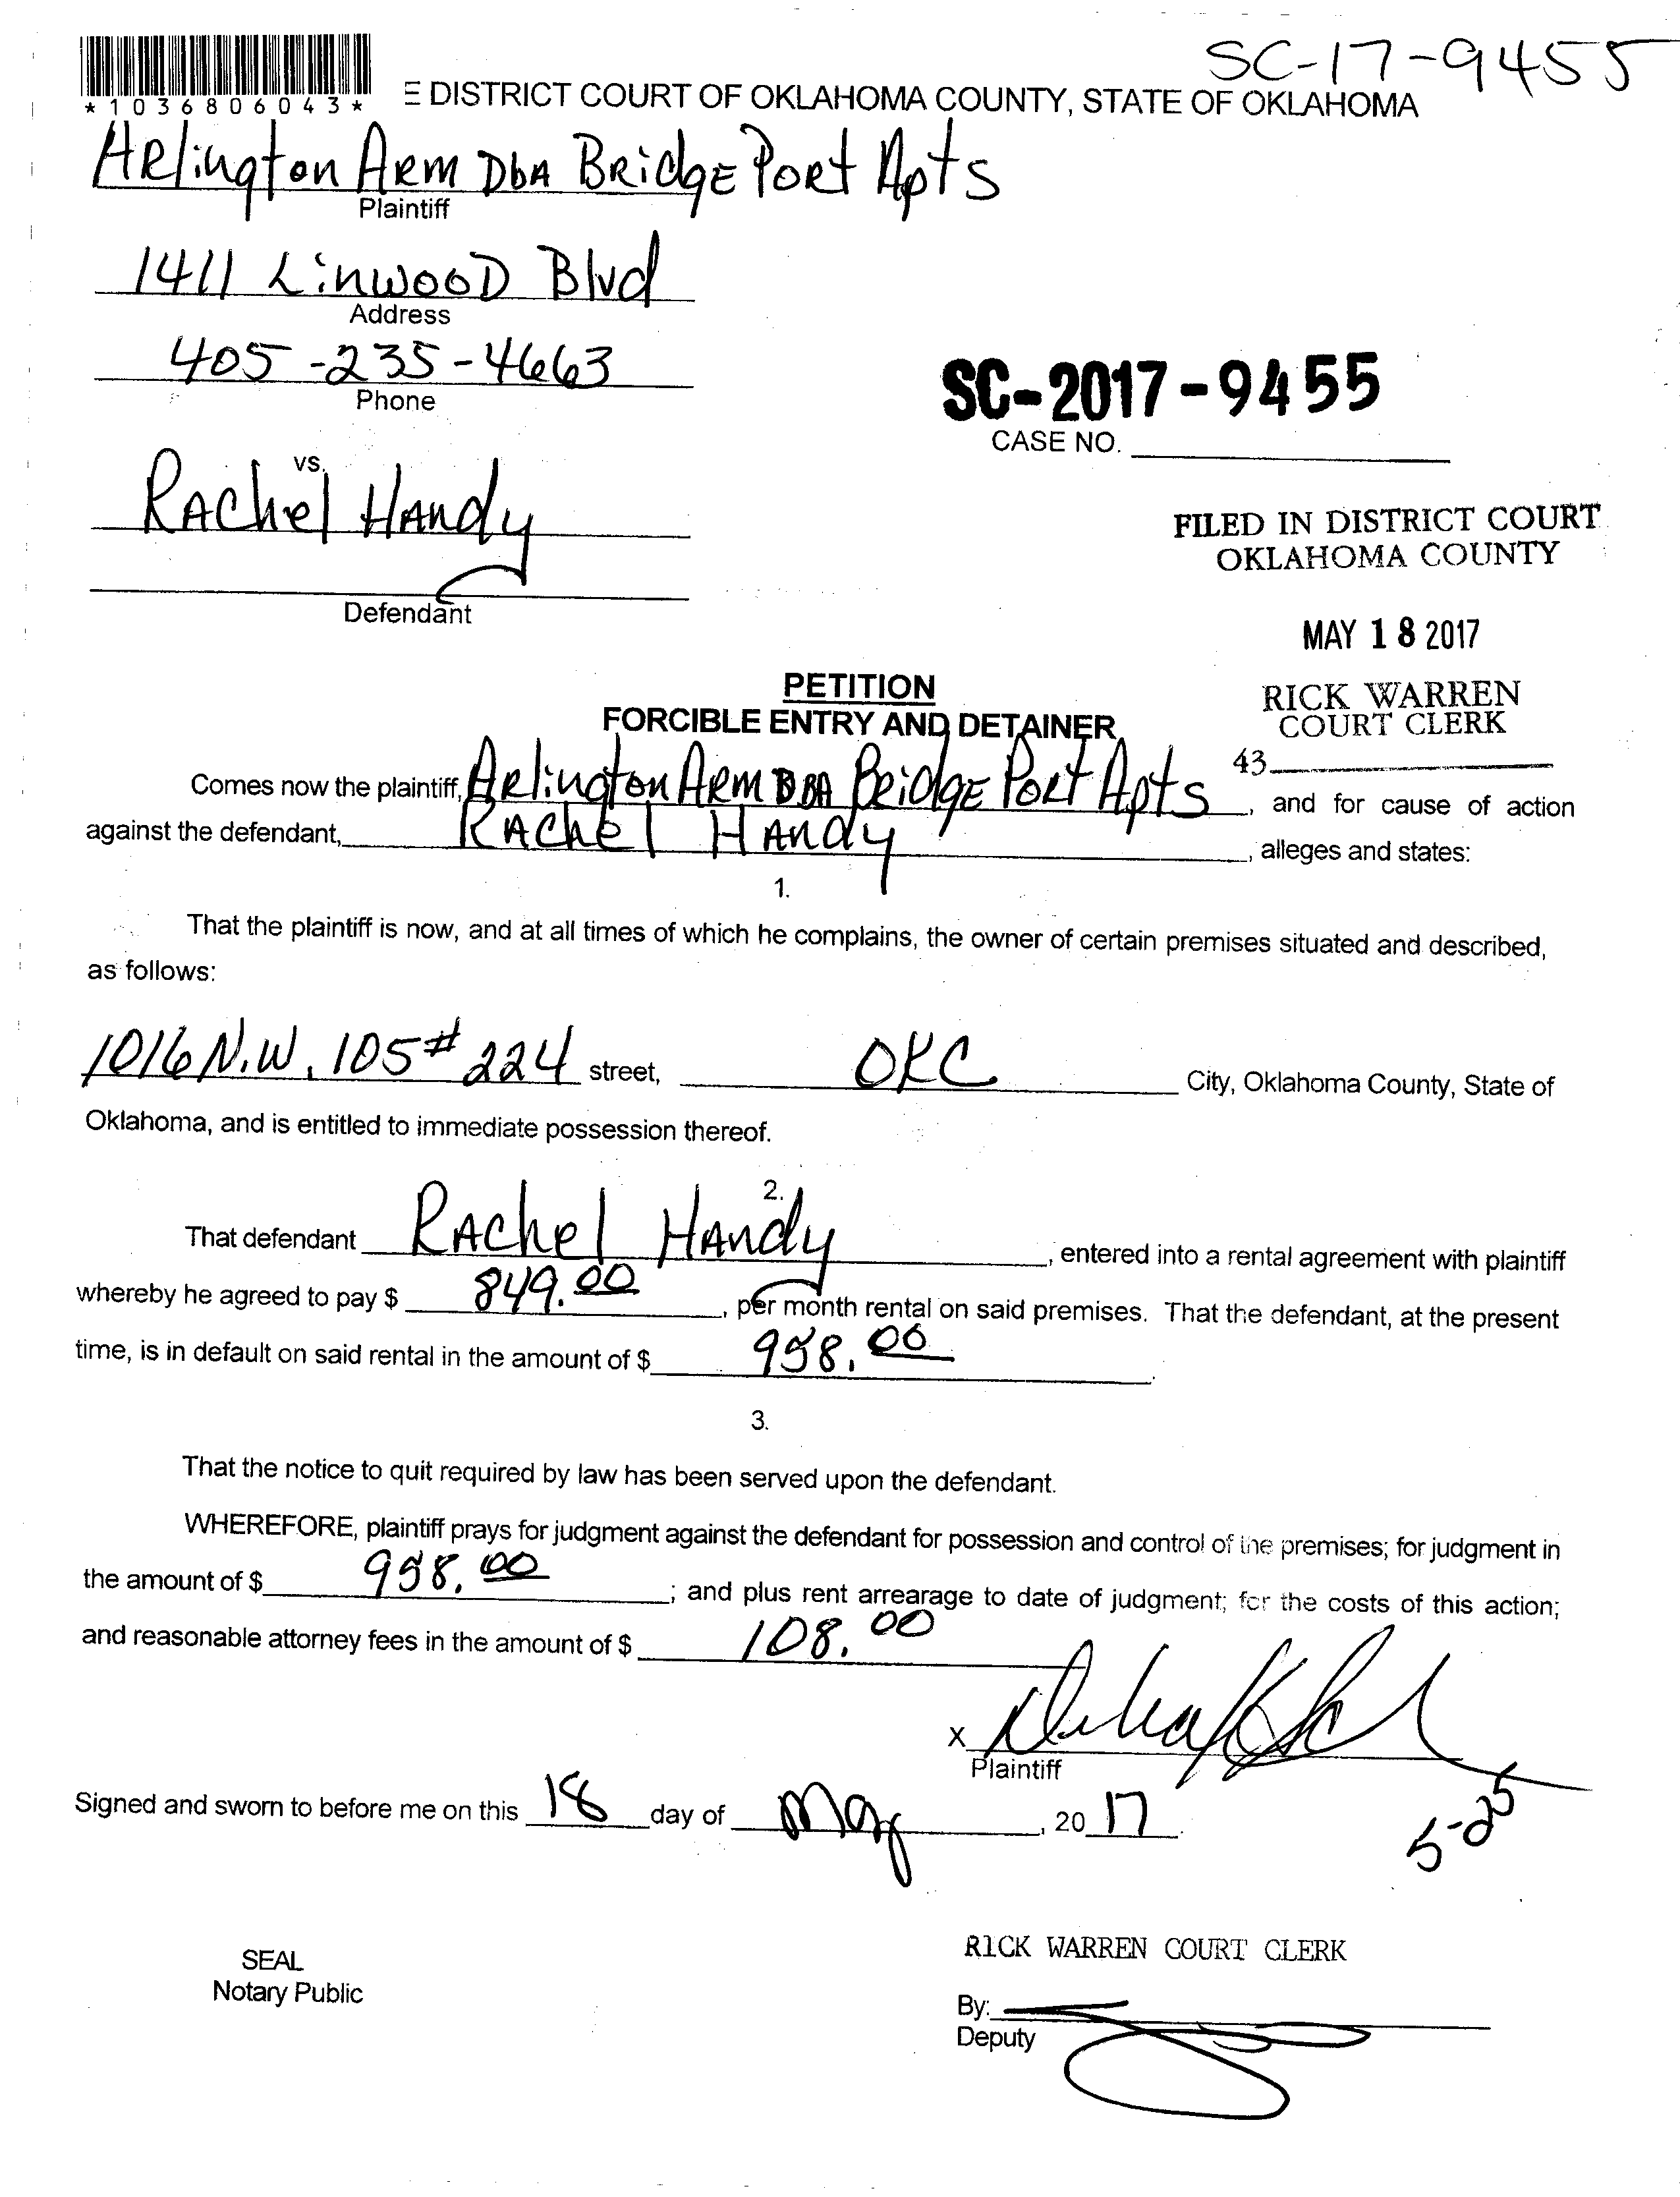 SC-17-9455
*1036806043*
E DISTRICT COURT OF OKLAHOMA COUNTY, STATE OF OKLAHOMA
ARlington ARM DbA BRidgE PoRt Apts
Plaintiff
1411 LinwooD Blvd
Address
405-235-4663
Phone
SC-2017-9455
CASE NO.
vs.
RAchel HAndy
Defendant
FILED IN DISTRICT COURT
OKLAHOMA COUNTY
MAY 18 2017
RICK WARREN
COURT CLERK
43
PETITION
FORCIBLE ENTRY AND DETAINER
Comes now the plaintiff, ARlington ARM DBA BRidgE PoRt Apts, and for cause of action
against the defendant, RAchEl HAndy, alleges and states:
1.
That the plaintiff is now, and at all times of which he complains, the owner of certain premises situated and described,
as follows:
1016 N.W. 105 # 224 street, OKC City, Oklahoma County, State of
Oklahoma, and is entitled to immediate possession thereof.
2.
That defendant RAchel HAndy, entered into a rental agreement with plaintiff
whereby he agreed to pay $ 849.00, per month rental on said premises. That the defendant, at the present
time, is in default on said rental in the amount of $ 958.00.
3.
That the notice to quit required by law has been served upon the defendant.
WHEREFORE, plaintiff prays for judgment against the defendant for possession and control of the premises; for judgment in
the amount of $ 958.00; and plus rent arrearage to date of judgment; for the costs of this action;
and reasonable attorney fees in the amount of $ 108.00
X
Plaintiff
Signed and sworn to before me on this 18 day of May, 2017.
5-25
SEAL
Notary Public
RICK WARREN COURT CLERK
By:
Deputy